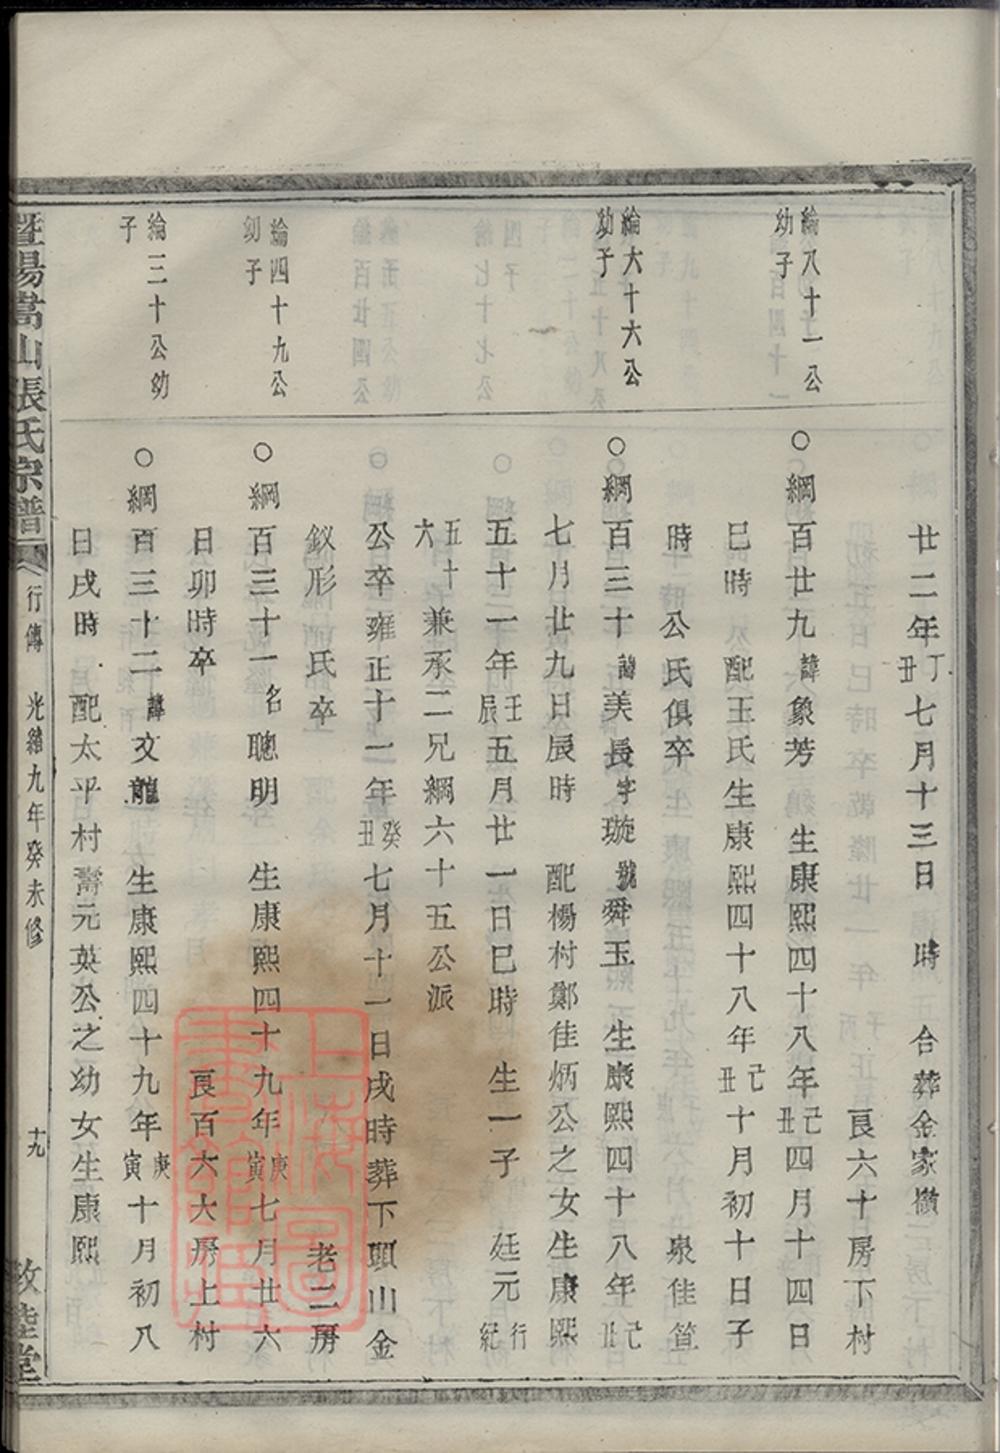 廿二年丁丑七月十三日　時　合葬金家嶺
良六十房下村
綸八十一公幼子
○綱百廿九諱象芳　生康熙四十八年己丑四月十四日
巳時　配王氏生康熙四十八年己丑十月初十日子
時　公氏俱卒　泉佳笪
綸六十六公幼子
○綱百三十諱美長字璇號舜玉　生康熙四十八年己丑
七月廿九日辰時　配楊村鄭佳炳公之女生康熙
五十一年壬辰五月廿一日巳時　生一子　廷元行紀
五十六兼承二兄綱六十五公派
公卒雍正十一年癸丑七月十一日戌時葬下頭山金
釵形　氏卒　老二房
綸四十九公幼子
○綱百三十一名聰明　生康熙四十九年庚寅七月廿六
日卯時卒　良百六大房上村
綸三十公幼子
○綱百三十二諱文龍　生康熙四十九年庚寅十月初八
日戌時　配太平村壽元英公之幼女生康熙
暨陽嵩山張氏宗譜　行傳　光緒九年癸未修　十九　敦睦堂
上海圖書館藏